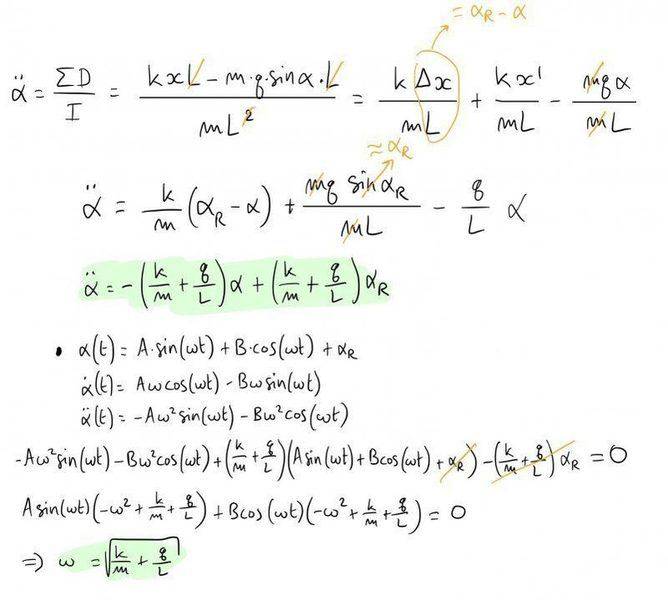 = α_R - α
α̈ = ΣD/I = (k x L - m·g·sinα·L)/(mL²) = k Δx/(mL) + k x'/(mL) - mgα/(mL)
≈ α_R
α̈ = k/m (α_R - α) + mg sin α_R/(mL) - g/L α
α̈ = -(k/m + g/L)α + (k/m + g/L)α_R
• α(t) = A·sin(ωt) + B·cos(ωt) + α_R
α̇(t) = Aωcos(ωt) - Bωsin(ωt)
α̈(t) = -Aω²sin(ωt) - Bω²cos(ωt)
-Aω²sin(ωt) - Bω²cos(ωt) + (k/m + g/L)(Asin(ωt) + Bcos(ωt) + α_R) - (k/m + g/L)α_R = 0
Asin(ωt)(-ω² + k/m + g/L) + Bcos(ωt)(-ω² + k/m + g/L) = 0
⇒ ω = √(k/m + g/L)